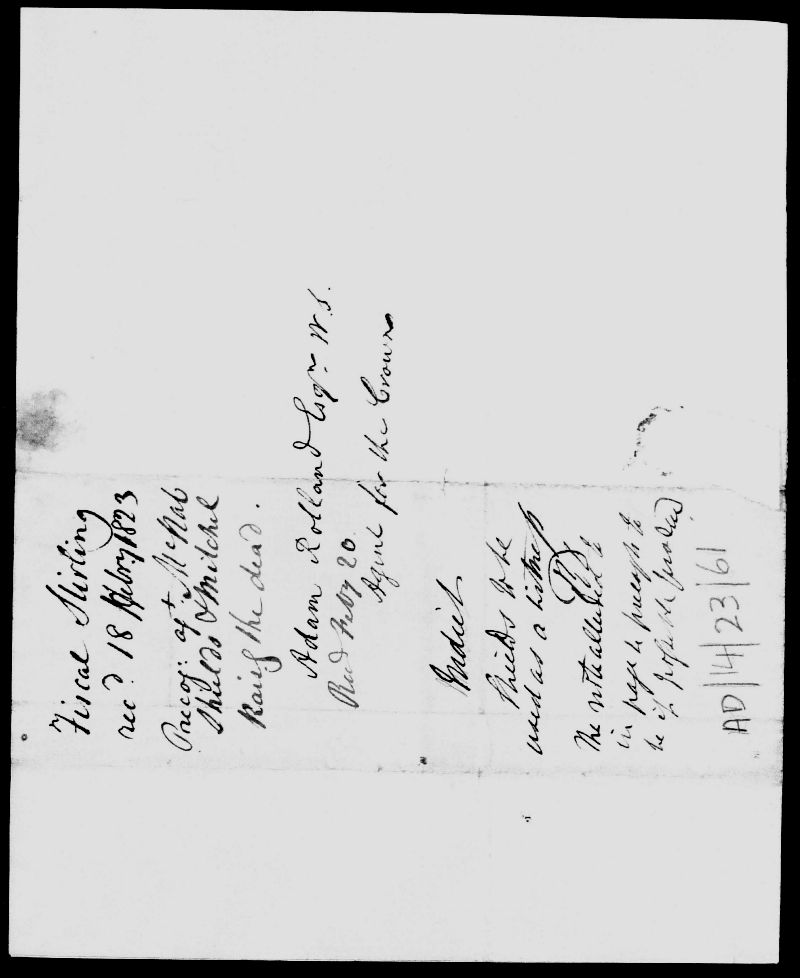 Fiscal Stirling
rec.d 18 Febry 1823
Precog: agt McNab
Shields & Mitchel
Raisg the dead.
Adam Rolland Esqr. W.S.
Rud Feby 20.
Agent for the Crown
Indict
Shields to be
used as a Witness
The note alluded to
in page
be if possible
AD/14/23/61